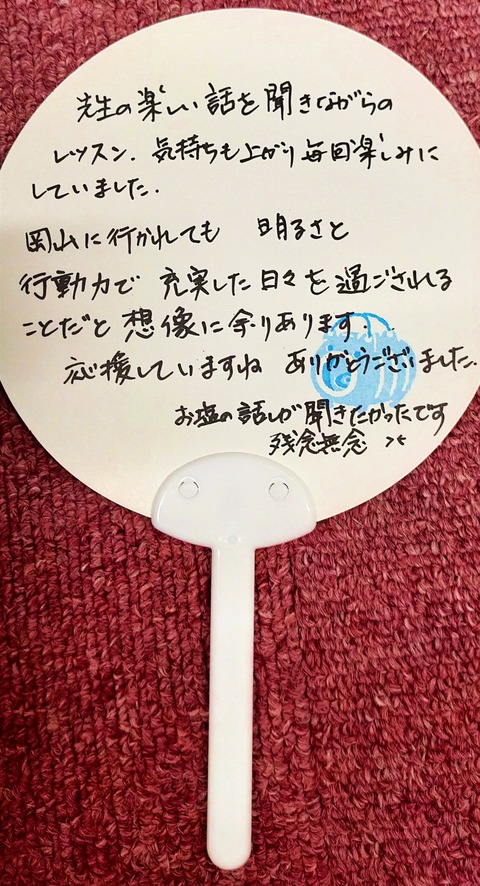 先生の楽しい話を聞きながらの
レッスン.気持ちも上がり毎回楽しみに
していました.
岡山に行かれても 明るさと
行動力で 充実した日々を過ごされる
ことだと想像に余りあります.
応援していますね ありがとうございました.
お塩の話しが聞きたかったです
残念無念